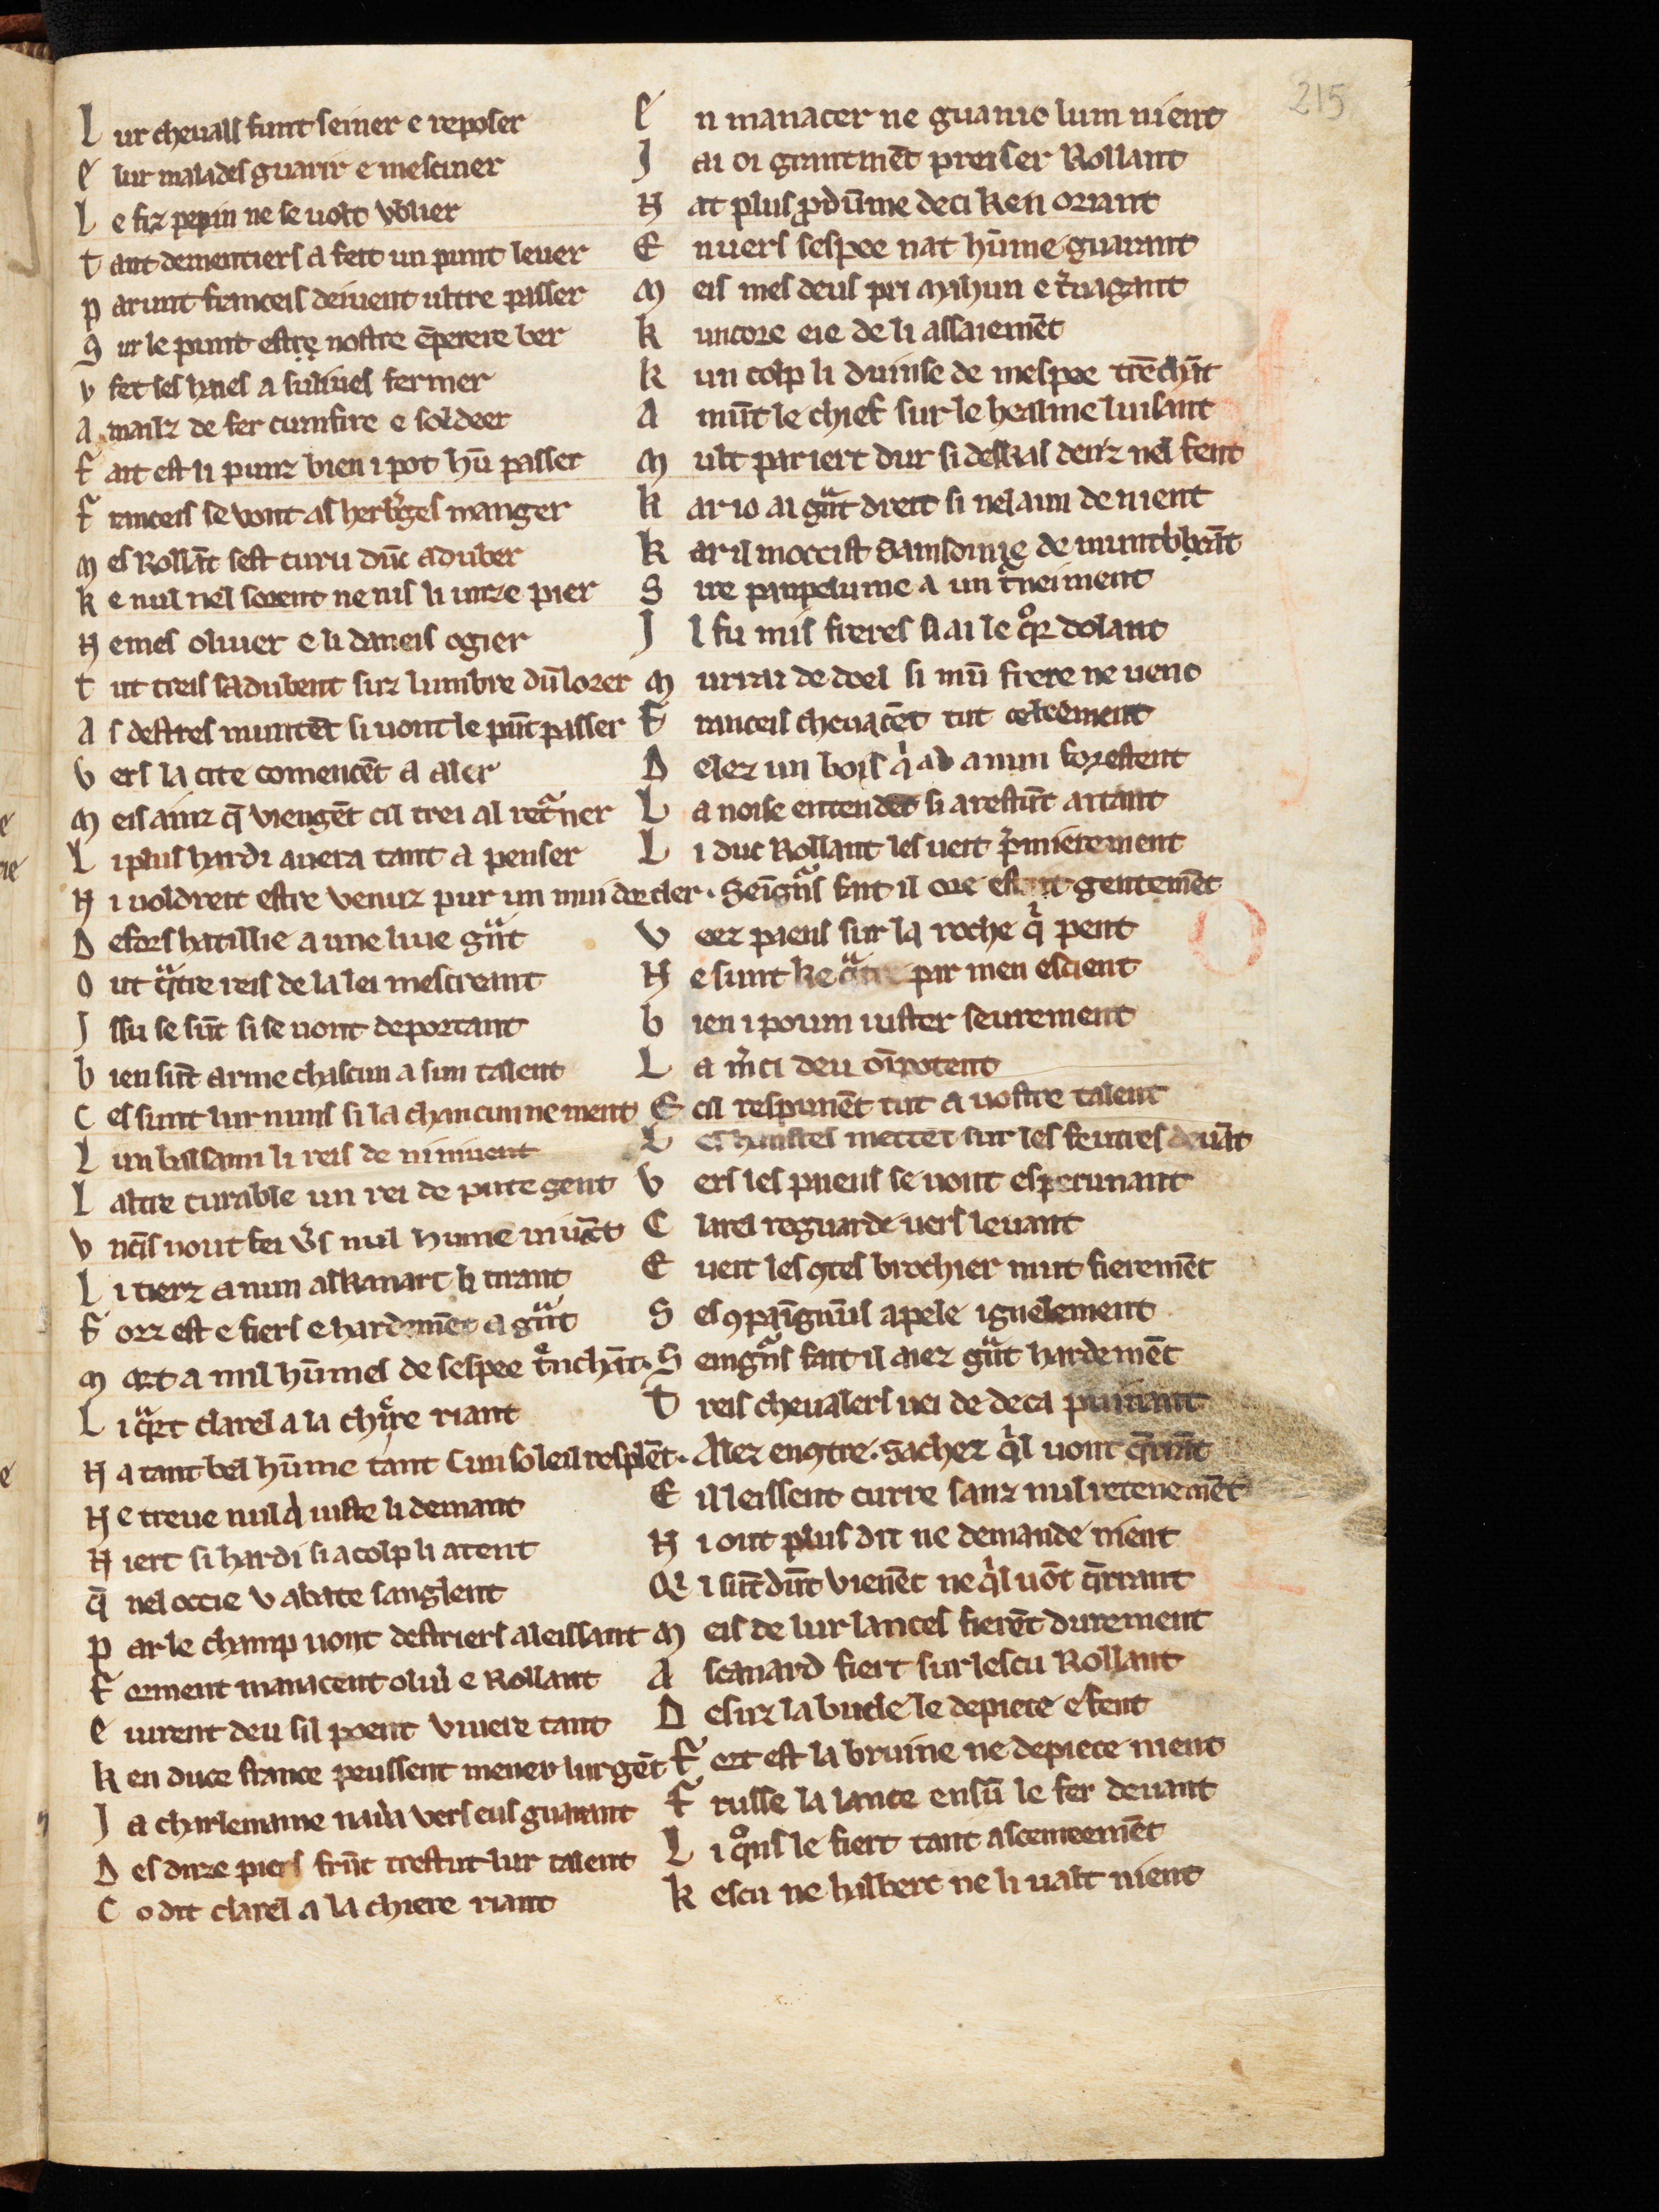 215
L ur cheuals funt seiner e reposer
E lur malades guarir e mesciner
L e fiz pepin ne se uolt vblier
T ant dementiers a feit un punt leuer
P ar unt franceis deiuent ultre passer
S ur le punt estre nostre ēperere ber
V fet ses haies a
A mailz de fer cumfire e soldeer
F ait est li punz bien i pot hū passer
F ranceis se vont as herb̾ges manger
M es Rollāt sest curu dūc aduber
K e nul nel sovent ne nis li unze pier
N emes oliuer e li daneis ogier
T ut treis sadubent suz lumbre dū lorer
A s destres muntēt si uont le pūt passer
V ers la cite comencēt a aler
M eis ainz q̄ viengēt cil trei al retͣner
L i plus hardi auera tant a penser
N i uoldreit estre venuz pur un mui dor cler.
D efors hatillie a une liue gͣnt
O ut qͣtre reis de la lei mescreant
I ssu se sūt si se uont deportant
B ien sūt arme chascun a sun talent
C es sunt lur nuns si la chancun ne ment
L un balsami li reis de niniuent
L altre curable un rei de pute gent
V nc̄s nout fei v̾s nul hume
L i tierz a nun alkanart li tirant
F orz est e fiers e hardemēt a gͣnt
M ort a mil hūmes de sespee tͤnchāt.
L i qͣrt clarel a la chͥere riant
N a tant bel hūme tant cun soleil resplēt.
N e treue nul qͥ iuste li demant
N iert si hardi si a colp li atent
Q̄ nel occie v abate sanglent
P ar le champ uont destriers aleissant
F orment manacent oliu̾ e Rollant
E iurent deu sil poent viuere tant
K en duce france peussent mener lur gēt
J a charlemaine nau̾a vers eus guarant
D es duze piers frūt trestut lur talent
C o dit clarel a la chiere riant
E n manacer ne guanio lum nient
J ai oi grantmēt preiser Rollant
N at plus pdūme deci ken oriant
E nuers sespee nat hūme guarant
M eis mes deus pri mahun e t̾uagant
K uncore eie de li assaiemēt
K un colp li duinse de mespee trēchāt
A mūt le chief sur le healme luisant
M ult par iert dur si deskas denz nel fent
K ar io ai gͣnt dreit si nel aim de nient
K ar il moccist Samsonie de muntb̾bāt
S ire pampelune a un tͦneiment
I l fu mis freres si ai le qͦr dolant
M urrai de doel si mū frere ne uenc
F ranceis cheuacēt tut celeement
D elez un bois qͥ ad a nun forestent
L a noise entendēt si arestūt atant
L i duc Rollant les ueit p̾mierement
Seigͣns fait il ore gentemēt
V eez paens sur la roche qͥ pent
N e sunt ke qͣtre par men escient
B ien i poum iuster seurement
L a m̾ci deu ōipotent
E cil respunēt tut a uostre talent
L es hanstes mettēt sur les feutres deuāt
V ers les paens se uont esperunant
C larel reguarde uers leuant
E ueit les qtes brochier mut fieremēt
S es qpaignūs apele ignelement
S eingͣns fait il aiez gͣnt hardemēt
T reis cheualers uei de deca puinant
Alez enqtre. Sachez qͥl uont q̄rāt
E il leissent curre sanz nul retenemēt
N i out plus dit ne demande nient
Q i sūt dūt vienēt ne qͥl uōt q̄rrant
M eis de lur lances fierēt durement
A scanard fiert sur lescu Rollant
D esuz la bucle le depiece e fent
F ort est la bruine ne depiece nient
F russe la lance ensū le fer deuant
L i qͦns le fiert tant asceneemēt
K escu ne halberc ne li ualt nient